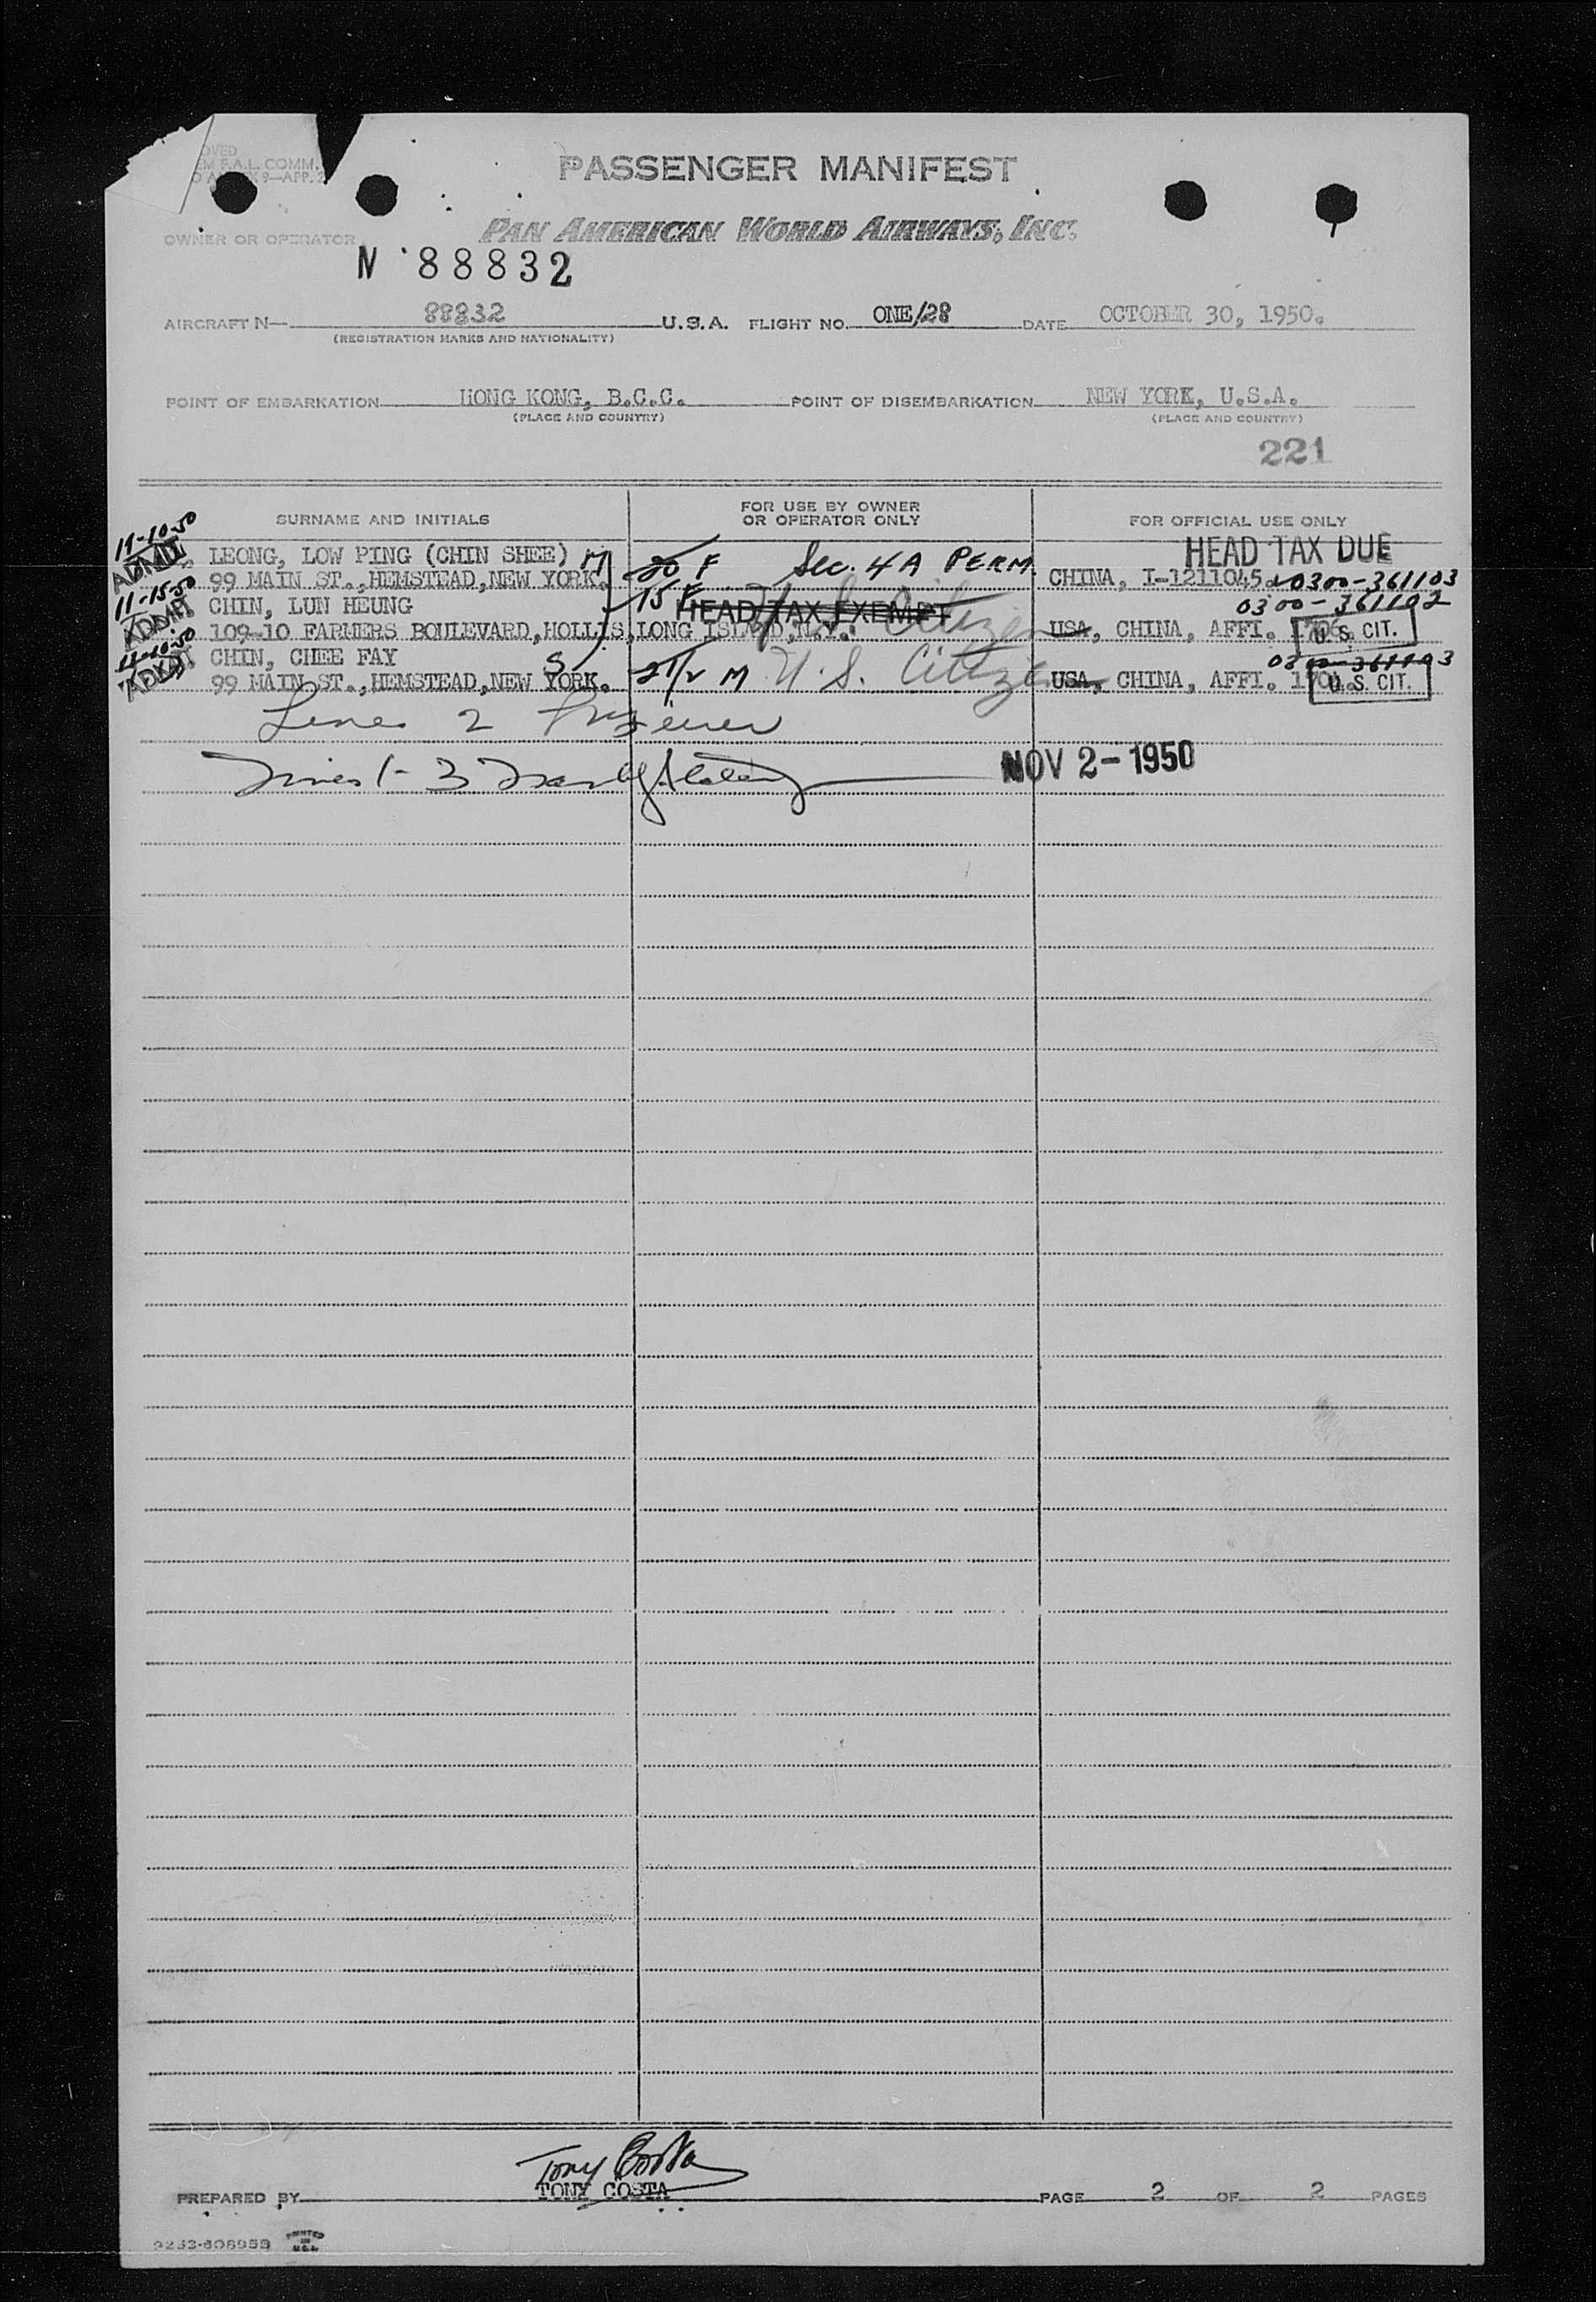 OVED
EM F.A.L. COMM.
9—APP. 2
PASSENGER MANIFEST
OWNER OR OPERATOR
PAN AMERICAN WORLD AIRWAYS, INC.
N 88832
AIRCRAFT N— 88832 U.S.A. FLIGHT NO. ONE/28 DATE OCTOBER 30, 1950.
(REGISTRATION MARKS AND NATIONALITY)
POINT OF EMBARKATION HONG KONG, B.C.C. POINT OF DISEMBARKATION NEW YORK, U.S.A.
(PLACE AND COUNTRY) (PLACE AND COUNTRY)
221
SURNAME AND INITIALS FOR USE BY OWNER OR OPERATOR ONLY FOR OFFICIAL USE ONLY
11-10-50 HEAD TAX DUE
ADMIT LEONG, LOW PING (CHIN SHEE) M 20 F Sec. 4A PERM.
99 MAIN ST.,HEMSTEAD,NEW YORK. CHINA, I-1211045 0300-361103
11-15-50 CHIN, LUN HEUNG 15 F HEAD TAX EXEMPT U.S. Citizen 0300-361102
ADMIT 109-10 FARMERS BOULEVARD,HOLLIS,LONG ISLAND,N.Y. USA, CHINA, AFFI. U.S. CIT.
11-10-50 CHIN, CHEE FAY 0300-361103
ADMIT 99 MAIN ST.,HEMSTEAD,NEW YORK. S 2½ M U.S. Citizen USA, CHINA, AFFI. U.S. CIT.
Line 2
1-3 NOV 2-1950
Tony Costa
PREPARED BY TONY COSTA PAGE 2 OF 2 PAGES
9232-606958 PRINTED IN U.S.A.